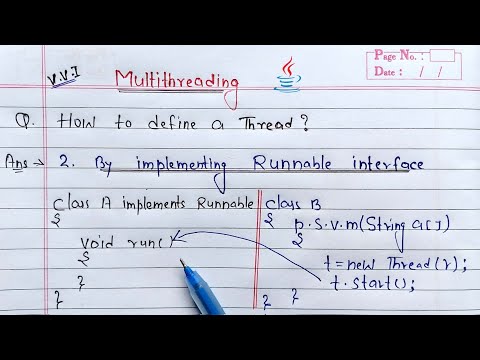 Page No. :
Date : / /
V.V.I
Multithreading
Q. How to define a Thread?
Ans → 2. By implementing Runnable interface
Class A implements Runnable
{
void run()
{
}
}
Class B
{
p.s.v.m(String a[])
{
t=new Thread(r);
t.start();
}
}